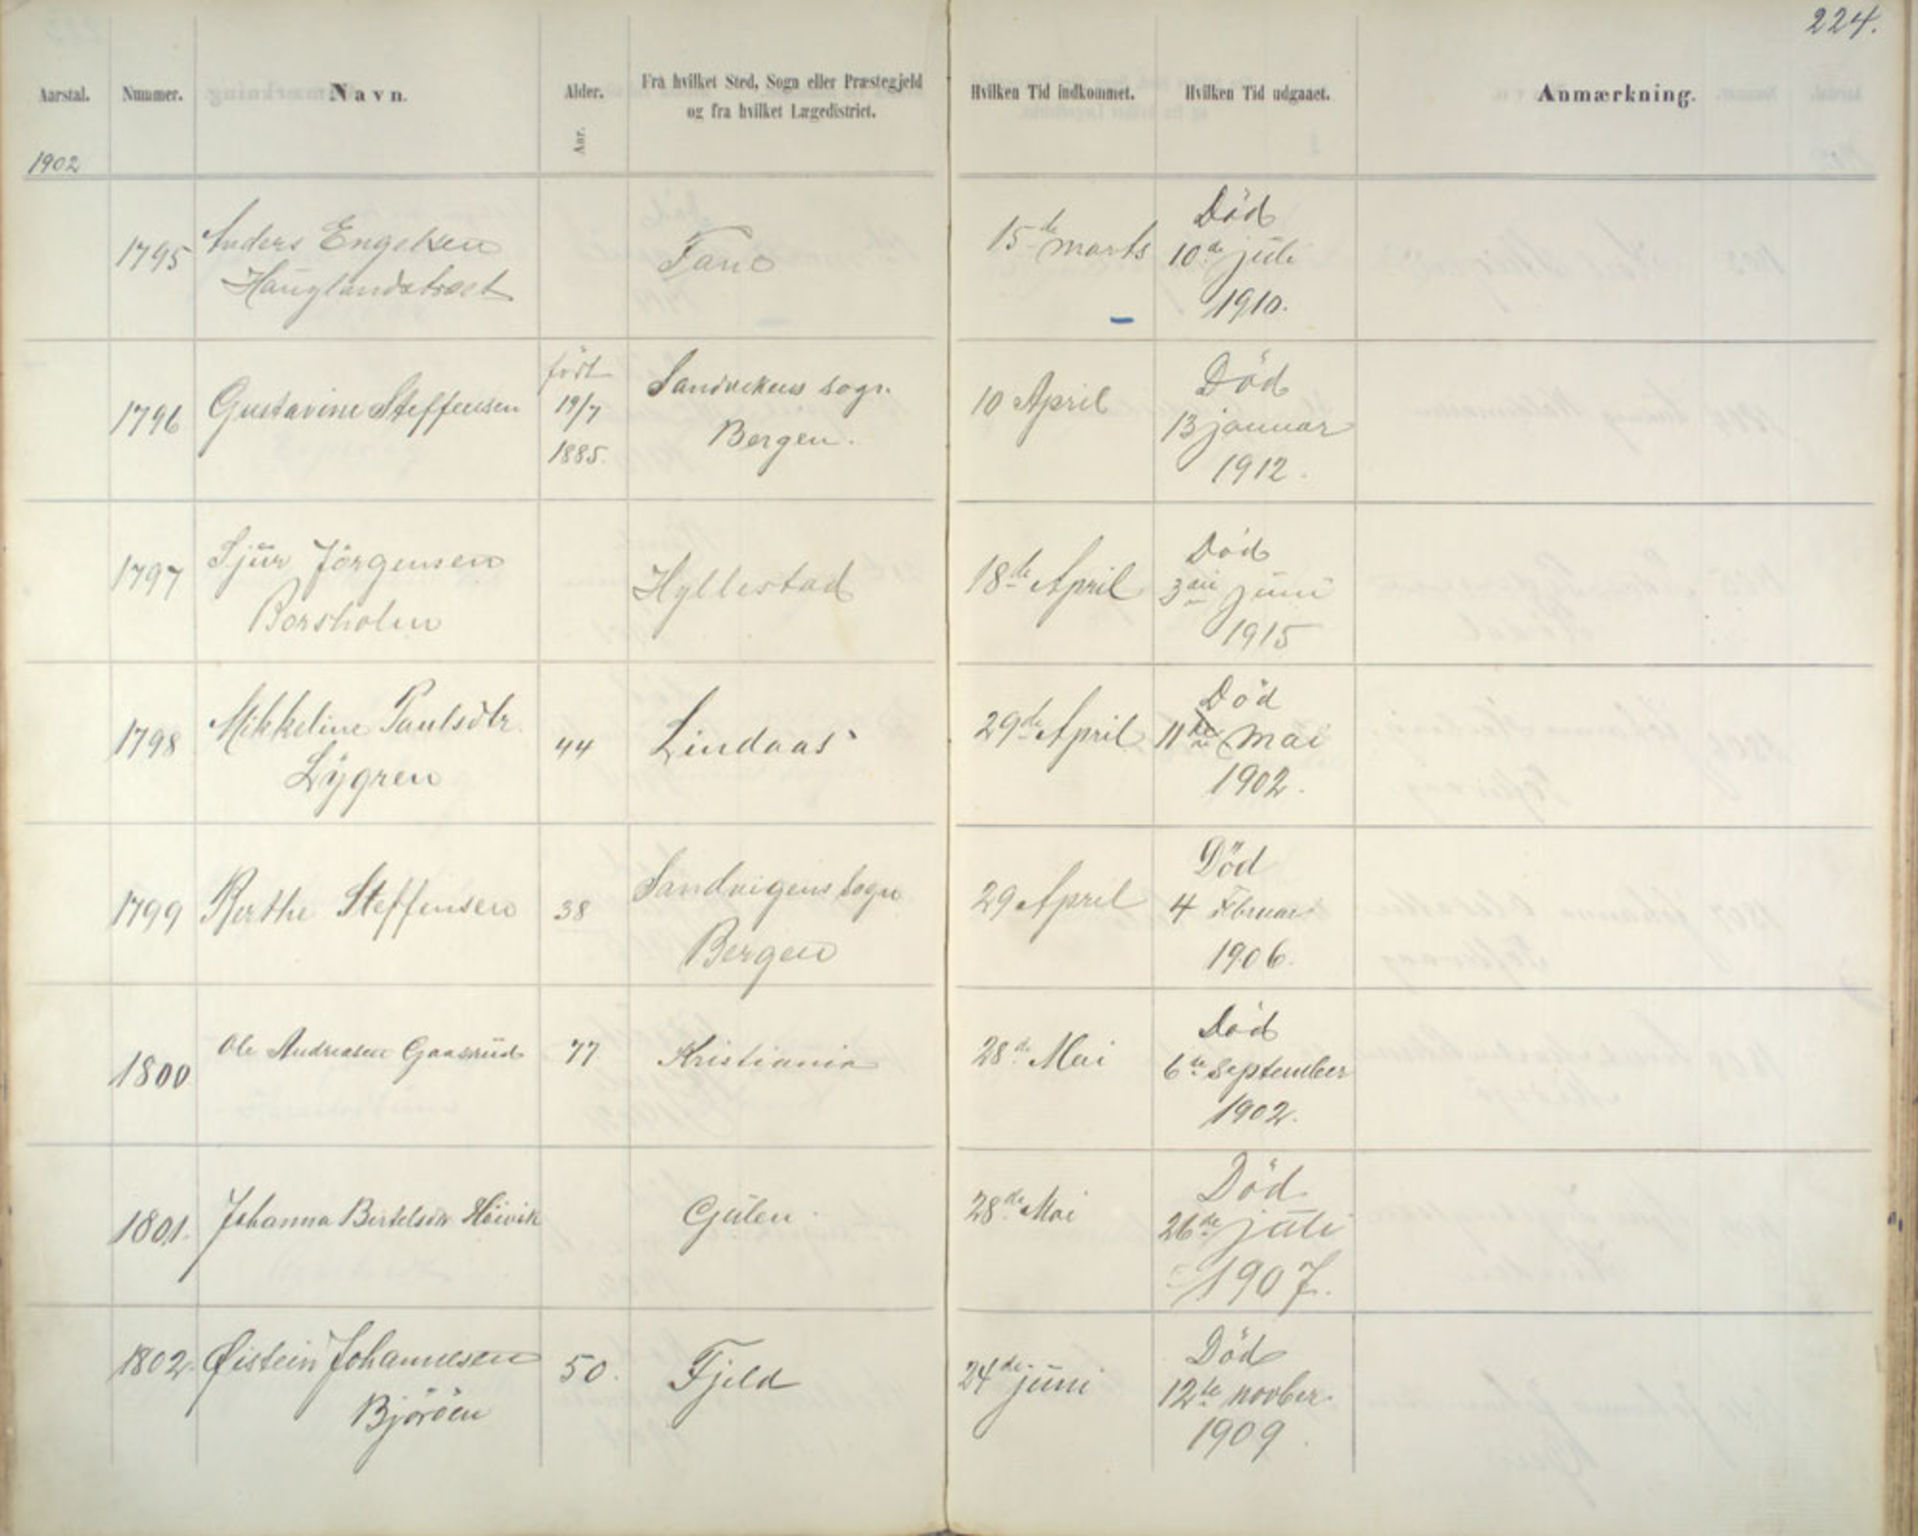 224.
Aarstal. Nummer. Navn. Alder. Fra hvilket Sted, Sogn eller Præstegjeld Hvilken Tid indkommet. Hvilken Tid udgaaet. Anmærkning.
Aar. og fra hvilket Lægedistrict.
1902
Død
1795 Anders Engelsen Fano 15de marts 10de juli
Hauglandstræet 1910.
født Sandvikens sogn Død
1796 Gustavine Steffensen 19/7 10 April 13 januar
1885. Bergen. 1912.
Sjur Jörgensen Død
1797 Hyllestad 18de April 3die juni
Borsholm 1915
Mikkeline Paulsdtr. Död
1798 44 Lindaas 29de April 11te Mai
Lygren 1902.
Sandvigens Sogn Död
1799 Berthe Steffensen 38 29 April 4 Februar
Bergen 1906.
Ole Andreasen Gaasrud 77 Kristiania 28de Mai Død
1800 6te September
1902.
Död
1801. Johanna Bertelsdtr Höivik Gulen 28de Mai 26de juli
1907.
1802. Øistein Johannesen 50. Fjeld 24de juni Död
Björöen 12te novber.
1909.